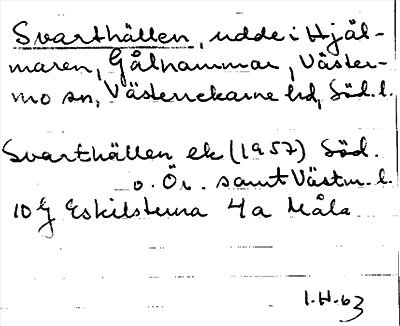 Svarthällen, udde i Hjäl-
maren, Gålhammar, Väster-
mo sn, Västerrekarne hd, Söd. l.
Svarthällen ek (1957) Söd.
o. Ör. samt Västm. l.
10 G Eskilstuna 4a Måla
1.H.63